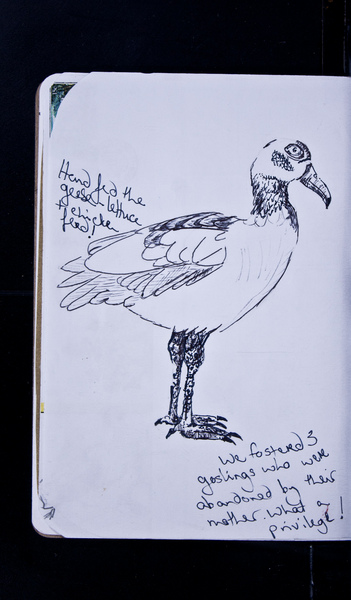 Hand fed the
geese lettuce
+ chicken
feed!
We fostered 3
goslings who were
abandoned by their
mother. What a
privilege!